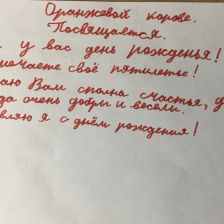 Оранжевой корове.
Посвящается.
у вас день рожденья!
своё пятилетье!
Вам сполна счастья,
очень добры и веселы.
я с днём рождения!